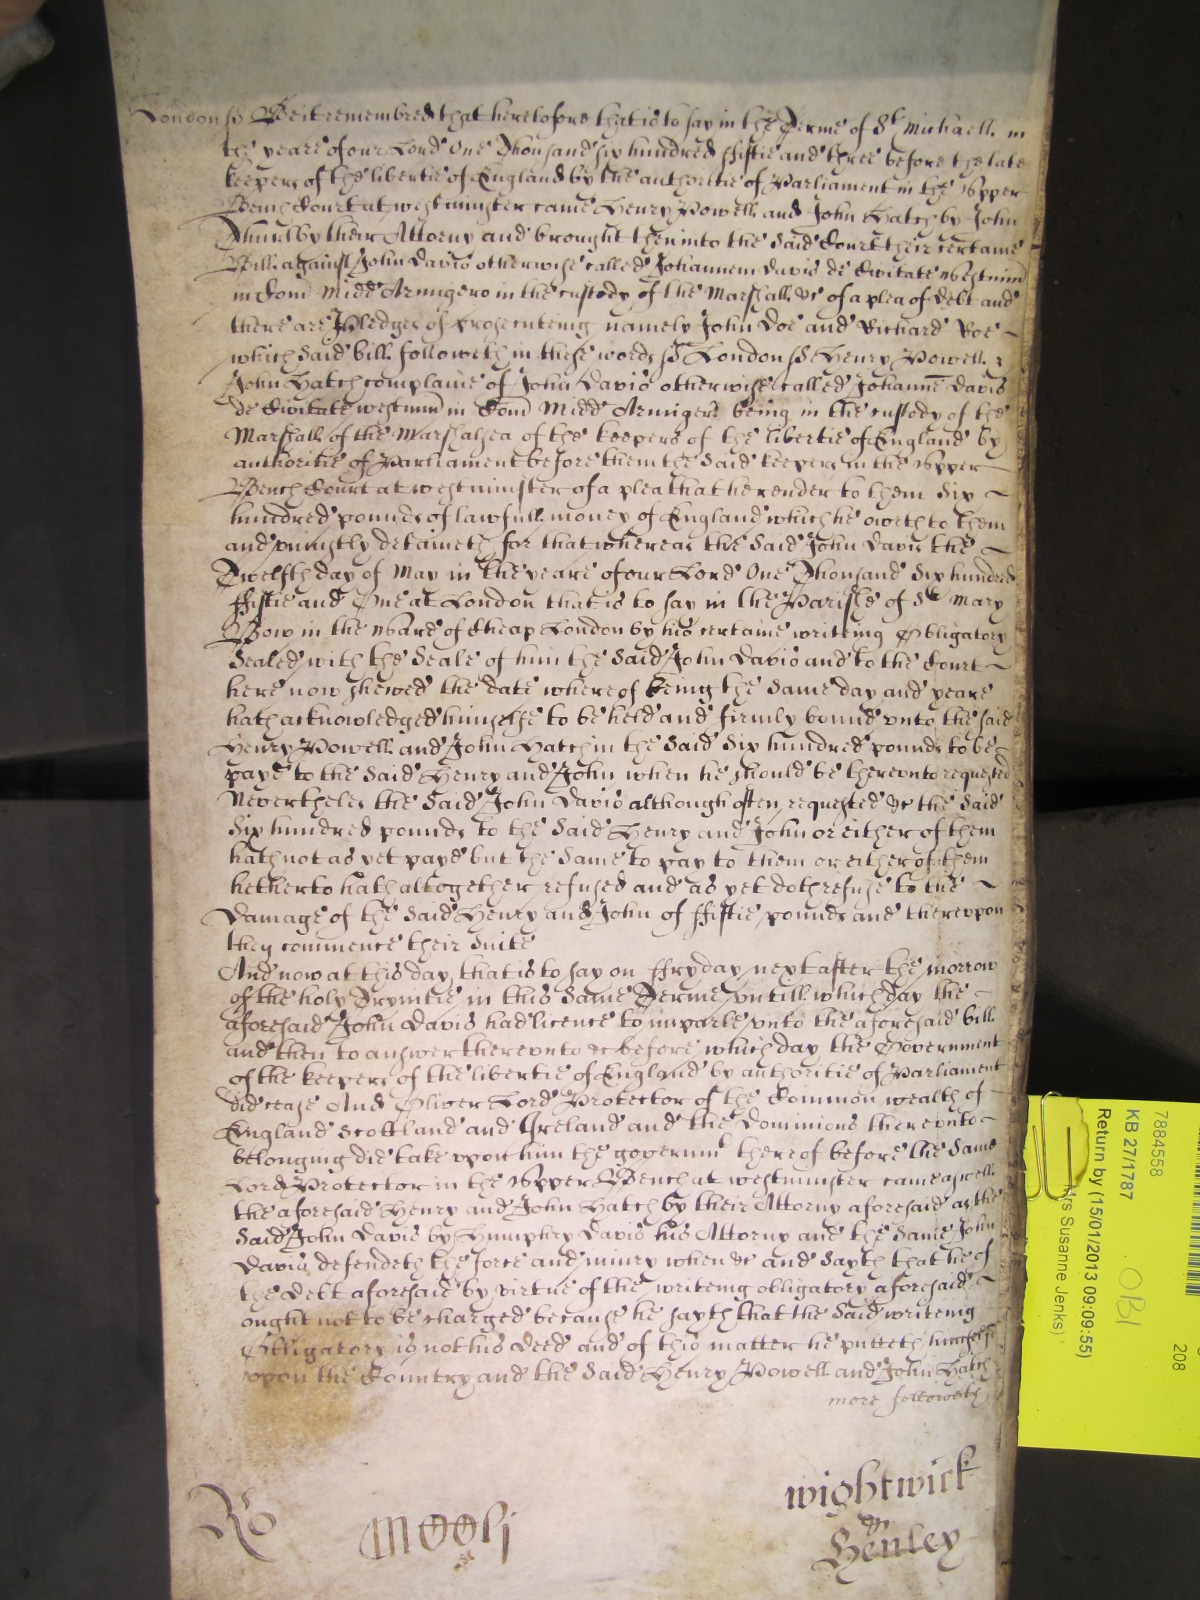 London ss Be it remembred that heretofore that is to say in the Terme of St Michaell in
the yeare of our Lord One Thousand six hundred ffiftie and three before the late
keepers of the libertie of England by the authoritie of Parliament in the Upper
Bench Court at westminster came Henry Powell and John Hatch by John
Thurlby their Attorny and brought then into the said Court their certaine
Bill against John Davis otherwise called Johannem Davis de Civitate Westminr
in Com Midd Armigero in the custody of the Marshall &c of a plea of debt and
there are Pledges of prosecuteing namely John Doe and Richard Roe
which said bill followeth in these words ss London ss Henry Powell &
John Hatch complaine of John Davis otherwise called Johanne Davis
de Civitate westminr in Com Midd Armigero being in the custody of the
Marshall of the Marshalsea of the keepers of the libertie of England by
authoritie of Parliament before them the said keepers in the Upper
Bench Court at westminster of a plea that he render to them Six
hundred pounds of lawfull money of England which he oweth to them
and uniustly detaineth for that whereas the said John Davis the
Twelfth day of May in the yeare of our Lord One Thousand Six hundred
ffiftie and One at London that is to say in the Parishe of St Mary
Bow in the Ward of Cheap London by his certaine writeing Obligatory
Sealed with the Seale of him the said John Davis and to the Court
here now shewed the date whereof being the same day and yeare
hath acknowledged himselfe to be held and firmly bound unto the said
Henry Powell and John Hatch in the said Six hundred pounds to be
payd to the said Henry and John when he should be thereunto requested
Neverthelés the said John Davis although often requested &c the said
Six hundred pounds to the said Henry and John or either of them
hath not as yet payd but the same to pay to them or either of them
hetherto hath altogether refused and as yet doth refuse to the
Damage of the said Henry and John of ffiftie pounds and thereupon
they commence their suite
And now at this day that is to say on ffryday next after the morrow
of the holy Trynitie in this same Terme untill which day the
aforesaid John Davis had licence to imparle unto the aforesaid bill
and then to answer thereunto &c before which day the Government
of the keepers of the libertie of England by authoritie of Parliament
did cease And Oliver Lord Protector of the Common wealth of
England Scottland and Ireland and the Dominions thereunto
belonging did take upon him the governmt thereof before the same
Lord Protector in the Upper Bench at westminster came aswell
the aforesaid Henry and John Hatch by their Attorny aforesaid as the
said John Davis by Humphry Davis his Attorny and the same John
Davis defendeth the force and iniury when &c and sayth that he of
the debt aforesaid by virtue of the writeing obligatory aforesaid
ought not to be charged because he sayth that the said writeing
Obligatory is not his deed and of this matter he putteth himselfe
upon the Country and the said Henry Powell and John Hatch
more followeth
Ro
wightwick
Henley
7884558
KB 27/1787
Return by (15/01/2013 09:09:55)
Mrs Susanne Jenks)
OBI
208